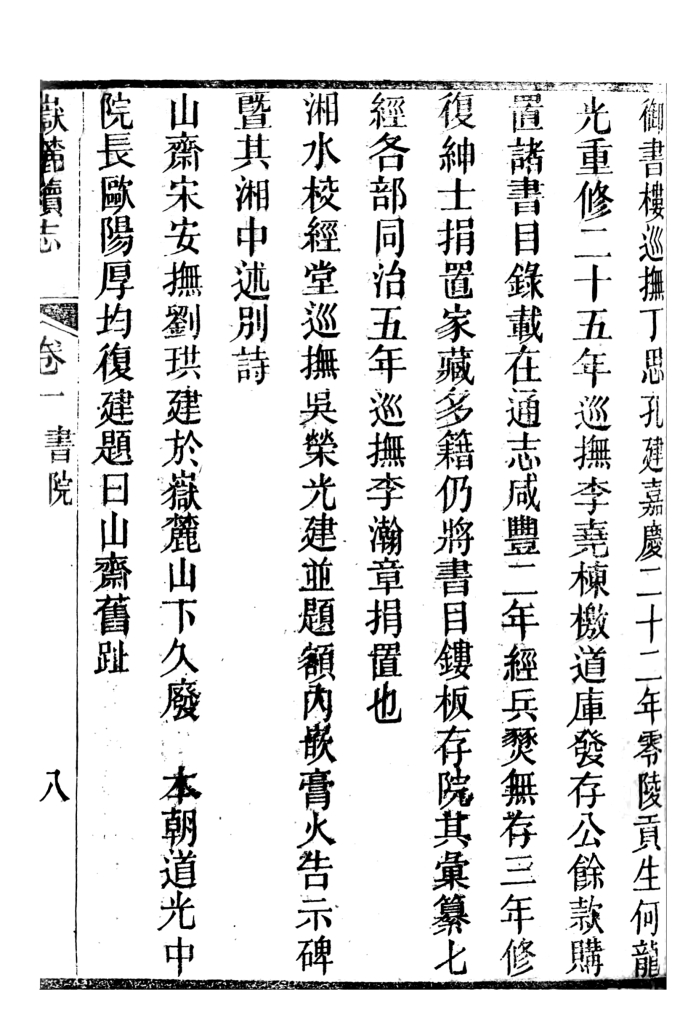 御書樓巡撫丁思孔建嘉慶二十二年零陵貢生何龍
光重修二十五年巡撫李堯棟檄道庫發存公餘款購
置諸書目錄載在通志咸豐二年經兵燹無存三年修
復紳士捐置家藏多籍仍將書目鏤板存院其彙纂七
經各部同治五年巡撫李瀚章捐置也
湘水校經堂巡撫吳榮光建並題額內嵌膏火告示碑
暨其湘中述別詩
山齋宋安撫劉珙建於嶽麓山下久廢　本朝道光中
院長歐陽厚均復建題曰山齋舊趾
嶽麓續志　卷一　書院　八